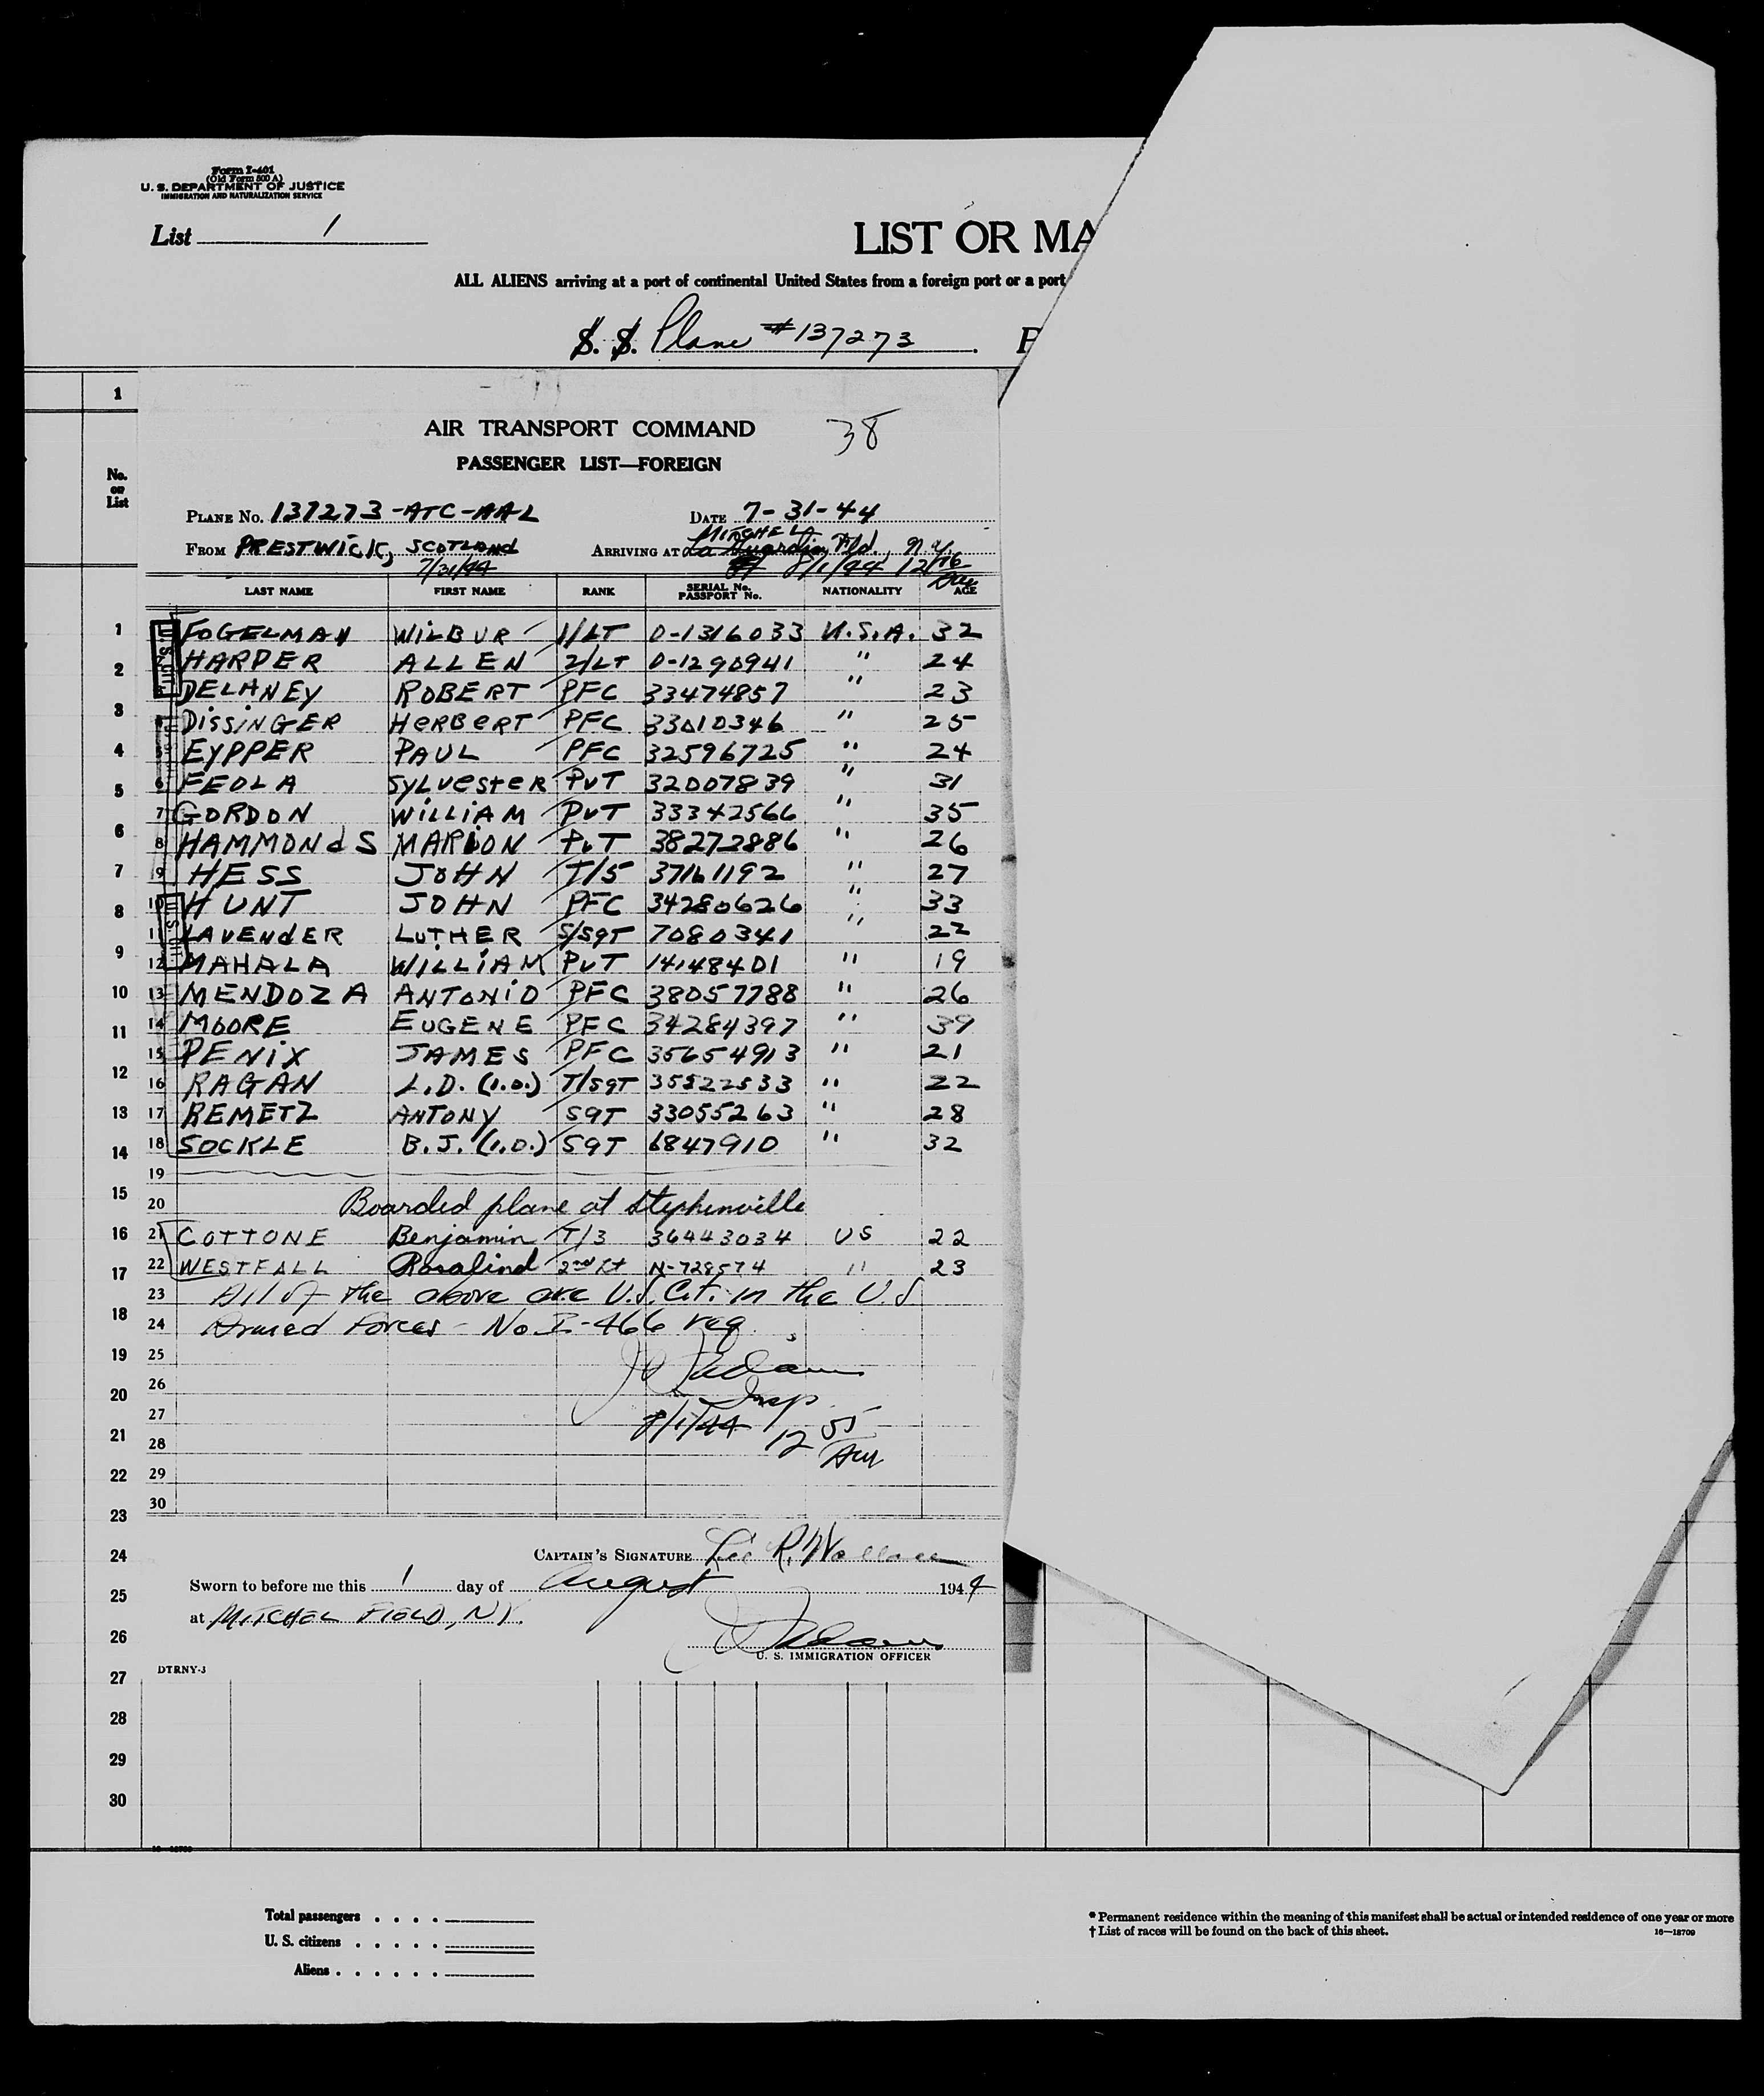 Form I-401
(Old Form 500 A)
U. S. DEPARTMENT OF JUSTICE
IMMIGRATION AND NATURALIZATION SERVICE
List 1
LIST OR MA
ALL ALIENS arriving at a port of continental United States from a foreign port or a port
S. S. Plane #137273
1
No. on List
AIR TRANSPORT COMMAND 38
PASSENGER LIST—FOREIGN
PLANE No. 137273-ATC-AAL DATE 7-31-44
FROM PRESTWICK, SCOTLAND ARRIVING AT MITCHEL La Guardia Fld., N.Y.
7/31/44 8/1/44 12/16
LAST NAME FIRST NAME RANK SERIAL No. PASSPORT No. NATIONALITY AGE
1 FOGELMAN WILBUR 1/LT O-1316033 U.S.A. 32
2 HARPER ALLEN 2/LT O-1290941 " 24
3 DELANEY ROBERT PFC 33474857 " 23
4 DISSINGER HERBERT PFC 33010346 " 25
5 EYPPER PAUL PFC 32596725 " 24
6 FEOLA SYLVESTER PVT 32007839 " 31
7 GORDON WILLIAM PVT 33342566 " 35
8 HAMMONdS MARION PVT 38272886 " 26
9 HESS JOHN T/5 37161192 " 27
10 HUNT JOHN PFC 34280626 " 33
11 LAVENdER LUTHER S/SGT 7080341 " 22
12 MAHALA WILLIAM PVT 14148401 " 19
13 MENDOZA ANTONIO PFC 38057788 " 26
14 MOORE EUGENE PFC 34284397 " 39
15 PENIX JAMES PFC 35654913 " 21
16 RAGAN L.D. (I.O.) T/SGT 35522533 " 22
17 REMETZ ANTONY SGT 33055263 " 28
18 SOCKLE B.J. (I.O.) SGT 6847910 " 32
19
20 Boarded plane at Stephenville
21 COTTONE Benjamin T/3 36443034 US 22
22 WESTFALL Rosalind 2nd Lt N-728574 " 23
23 All of the above are U.S. Cit. in the U.S
24 Armed Forces - No I-466 req.
25
26 Insp
27 8/1/44 12 55
28 AM
29
30
CAPTAIN'S SIGNATURE Lee R. Wallace
Sworn to before me this 1 day of August 1944
at MITCHEL FIELD, NY.
U. S. IMMIGRATION OFFICER
DTRNY-3
1
2
3
4
5
6
7
8
9
10
11
12
13
14
15
16
17
18
19
20
21
22
23
24
25
26
27
28
29
30
Total passengers . . . .
U. S. citizens . . . . .
Aliens . . . . . .
* Permanent residence within the meaning of this manifest shall be actual or intended residence of one year or more
† List of races will be found on the back of this sheet. 16—18709